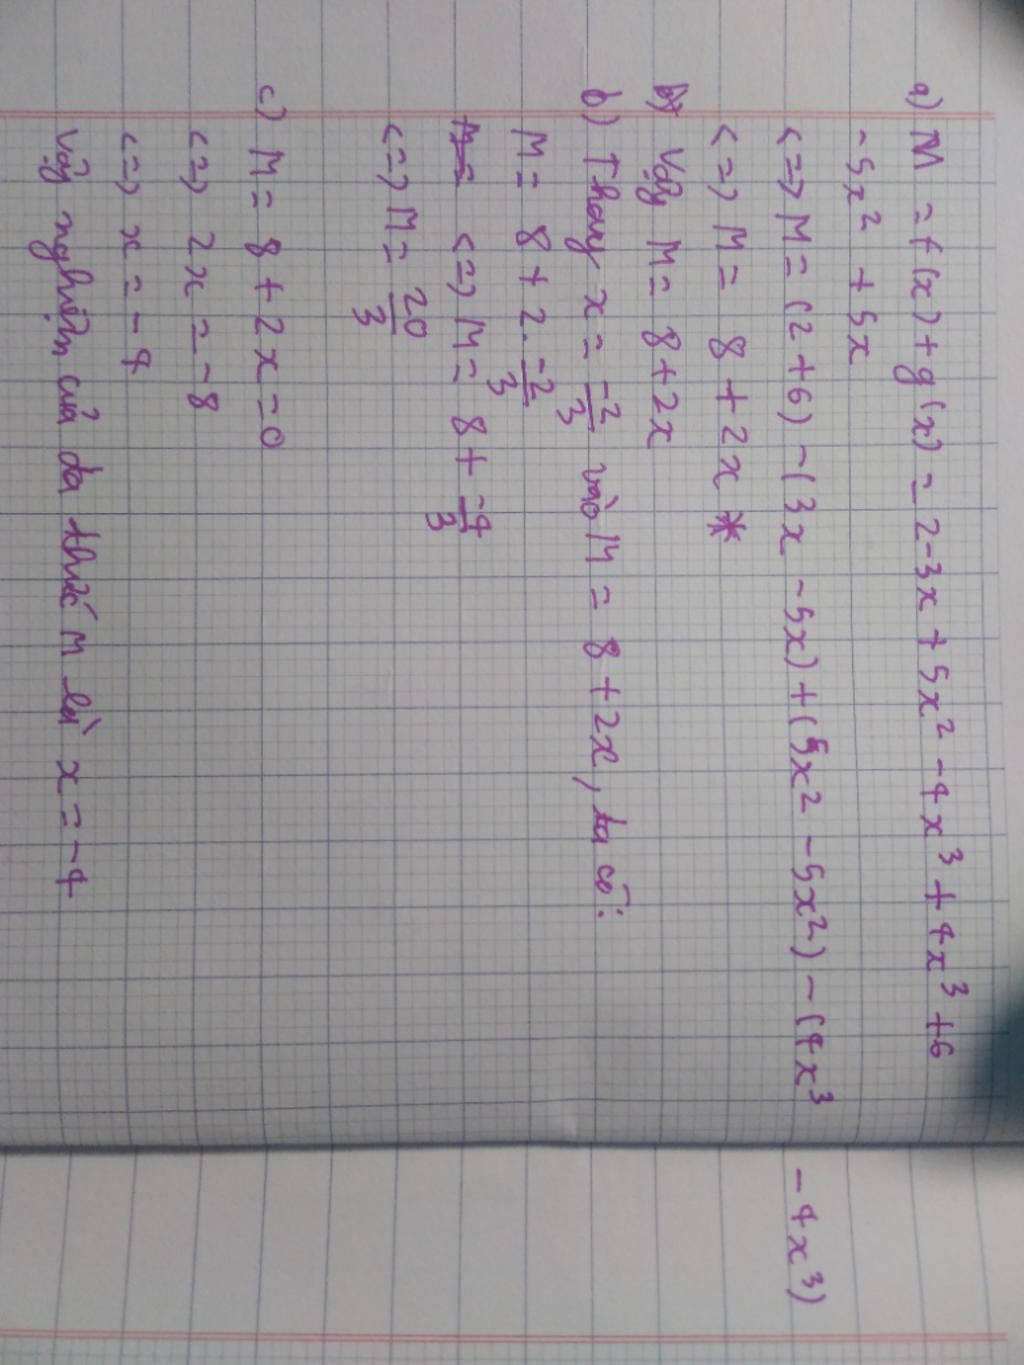 a) M = f(x) + g(x) = 2-3x + 5x² - 4x³ + 4x³ + 6
- 5x² + 5x
<=> M = (2+6) - (3x - 5x) + (5x² - 5x²) - (4x³ - 4x³)
<=> M = 8 + 2x *
Vậy M = 8+2x
b) Thay x = -2/3 vào M = 8 + 2x, ta có:
M = 8 + 2. -2/3
<=> M = 8 + -4/3
<=> M = 20/3
c) M = 8 + 2x = 0
<=> 2x = -8
<=> x = -4
Vậy nghiệm của đa thức M là x = -4